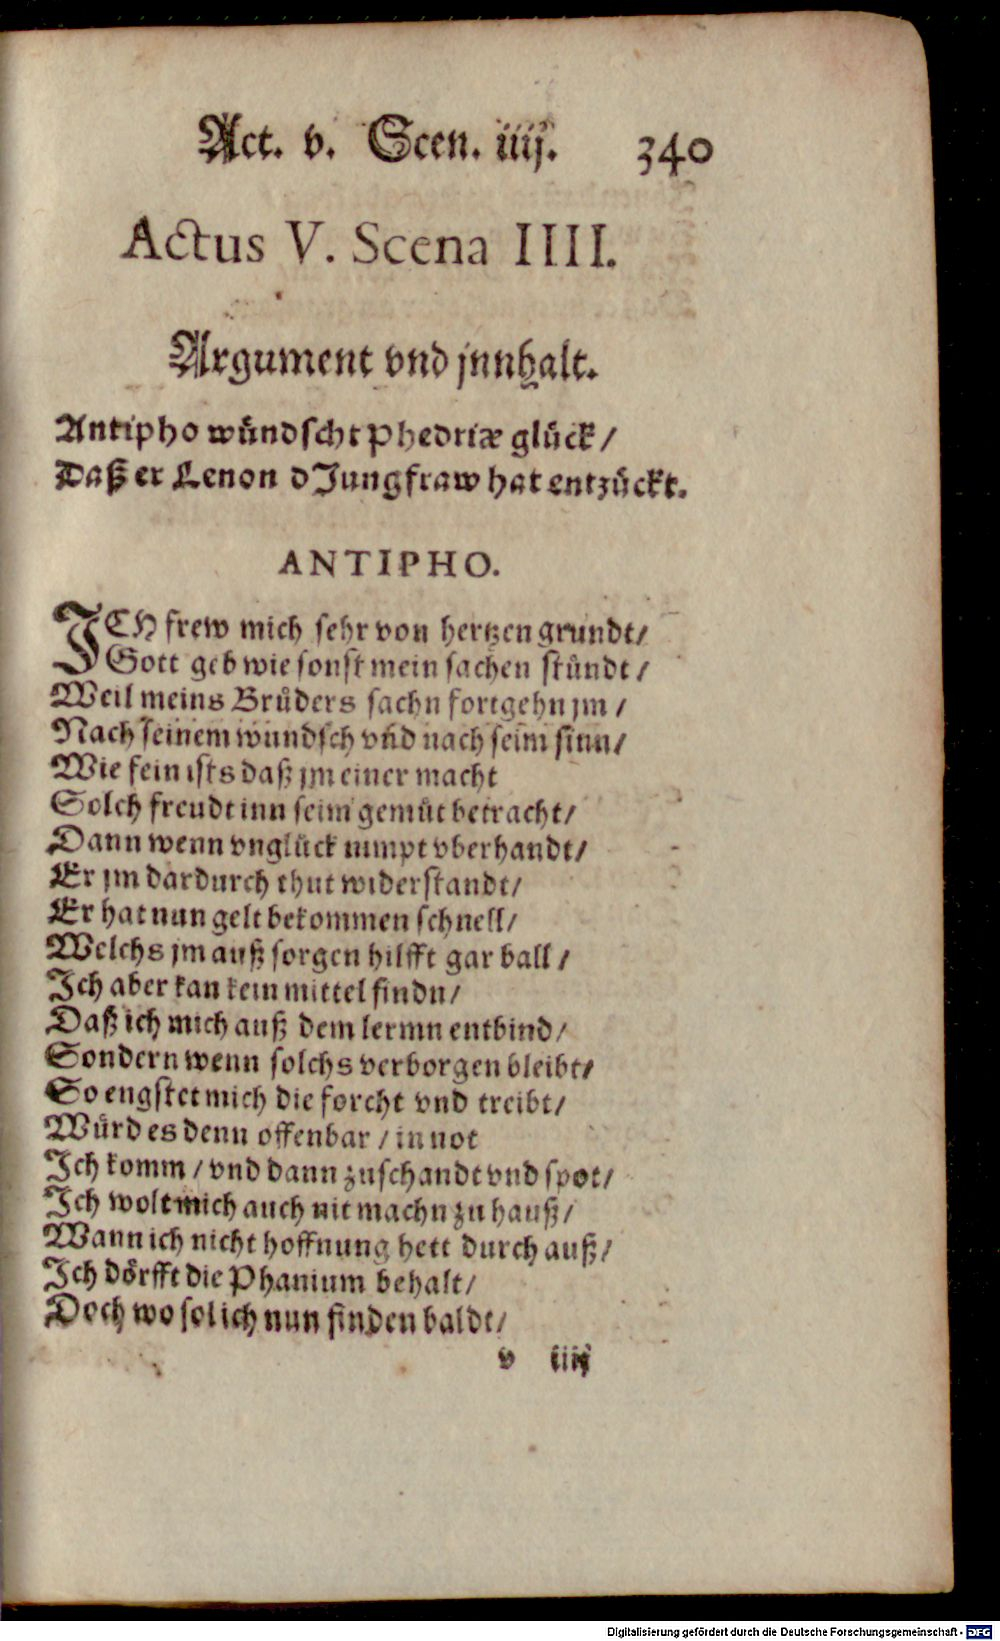 Act. v. Scen. iiij. 340
Actus V. Scena IIII.
Argument vnd jnnhalt.
Antipho wündscht Phedriæ glück /
Daß er Lenon dJungfraw hat entzückt.
ANTIPHO.
ICH frew mich sehr von hertzen grundt /
Gott geb wie sonst mein sachen stündt /
Weil meins Brůders sachn fortgehn jm /
Nach seinem wundsch vñd nach seim sinn /
Wie fein ists daß jm einer macht
Solch freudt inn seim gemüt betracht /
Dann wenn vnglück nimpt vberhandt /
Er jm dardurch thut widerstandt /
Er hat nun gelt bekommen schnell /
Welchs jm auß sorgen hilfft gar ball /
Ich aber kan kein mittel findn /
Daß ich mich auß dem lermn entbind /
Sondern wenn solchs verborgen bleibt /
So engstet mich die forcht vnd treibt /
Würd es denn offenbar / in not
Ich komm / vnd dann zuschandt vnd spot /
Ich wolt mich auch nit machn zu hauß /
Wann ich nicht hoffnung hett durch auß /
Ich dörfft die Phanium behalt /
Doch wo sol ich nun finden baldt /
v iiij
Digitalisierung gefördert durch die Deutsche Forschungsgemeinschaft - DFG